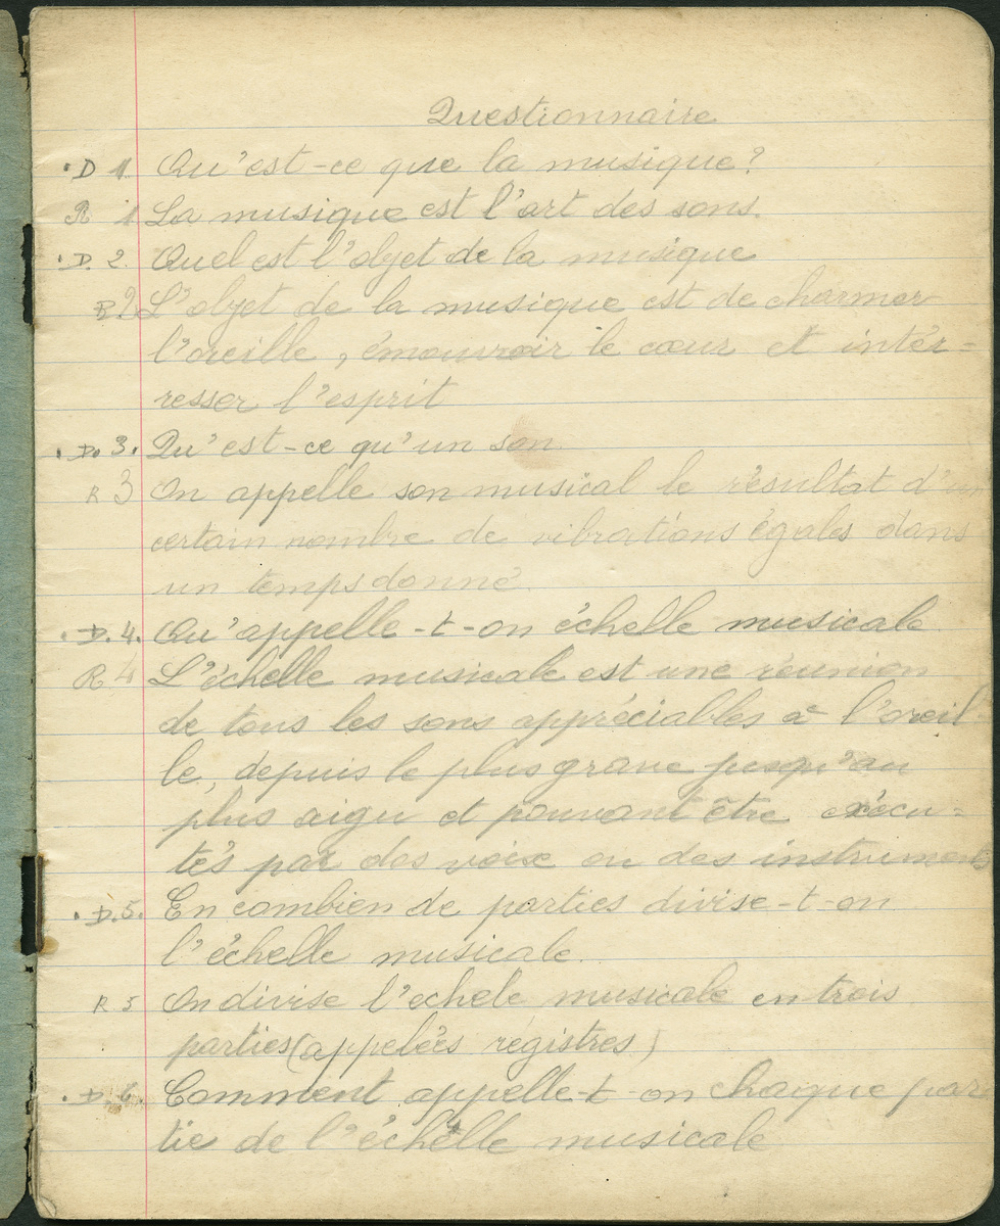 Questionnaire
D 1 Qu'est-ce que la musique?
R 1 La musique est l'art des sons.
D. 2. Quel est l'objet de la musique
R 2 L'objet de la musique est de charmer
l'oreille, émouvoir le cœur et intér-
resser l'esprit
D. 3. Qu'est-ce qu'un son
R 3 On appelle son musical le résultat d'un
certain nombre de vibrations égales dans
un temps donné.
D. 4. Qu'appelle-t-on échelle musicale
R 4 L'échelle musicale est une réunion
de tous les sons appréciables à l'oreil
le, depuis le plus grave jusqu'au
plus aigu et pouvant être exécu-
tés par des voix ou des instruments
D. 5. En combien de parties divise-t-on
l'échelle musicale.
R 5 On divise l'echele musicale en trois
parties (appelées régistres)
D. 6. Comment appelle-t-on chaque par
tie de l'échelle musicale